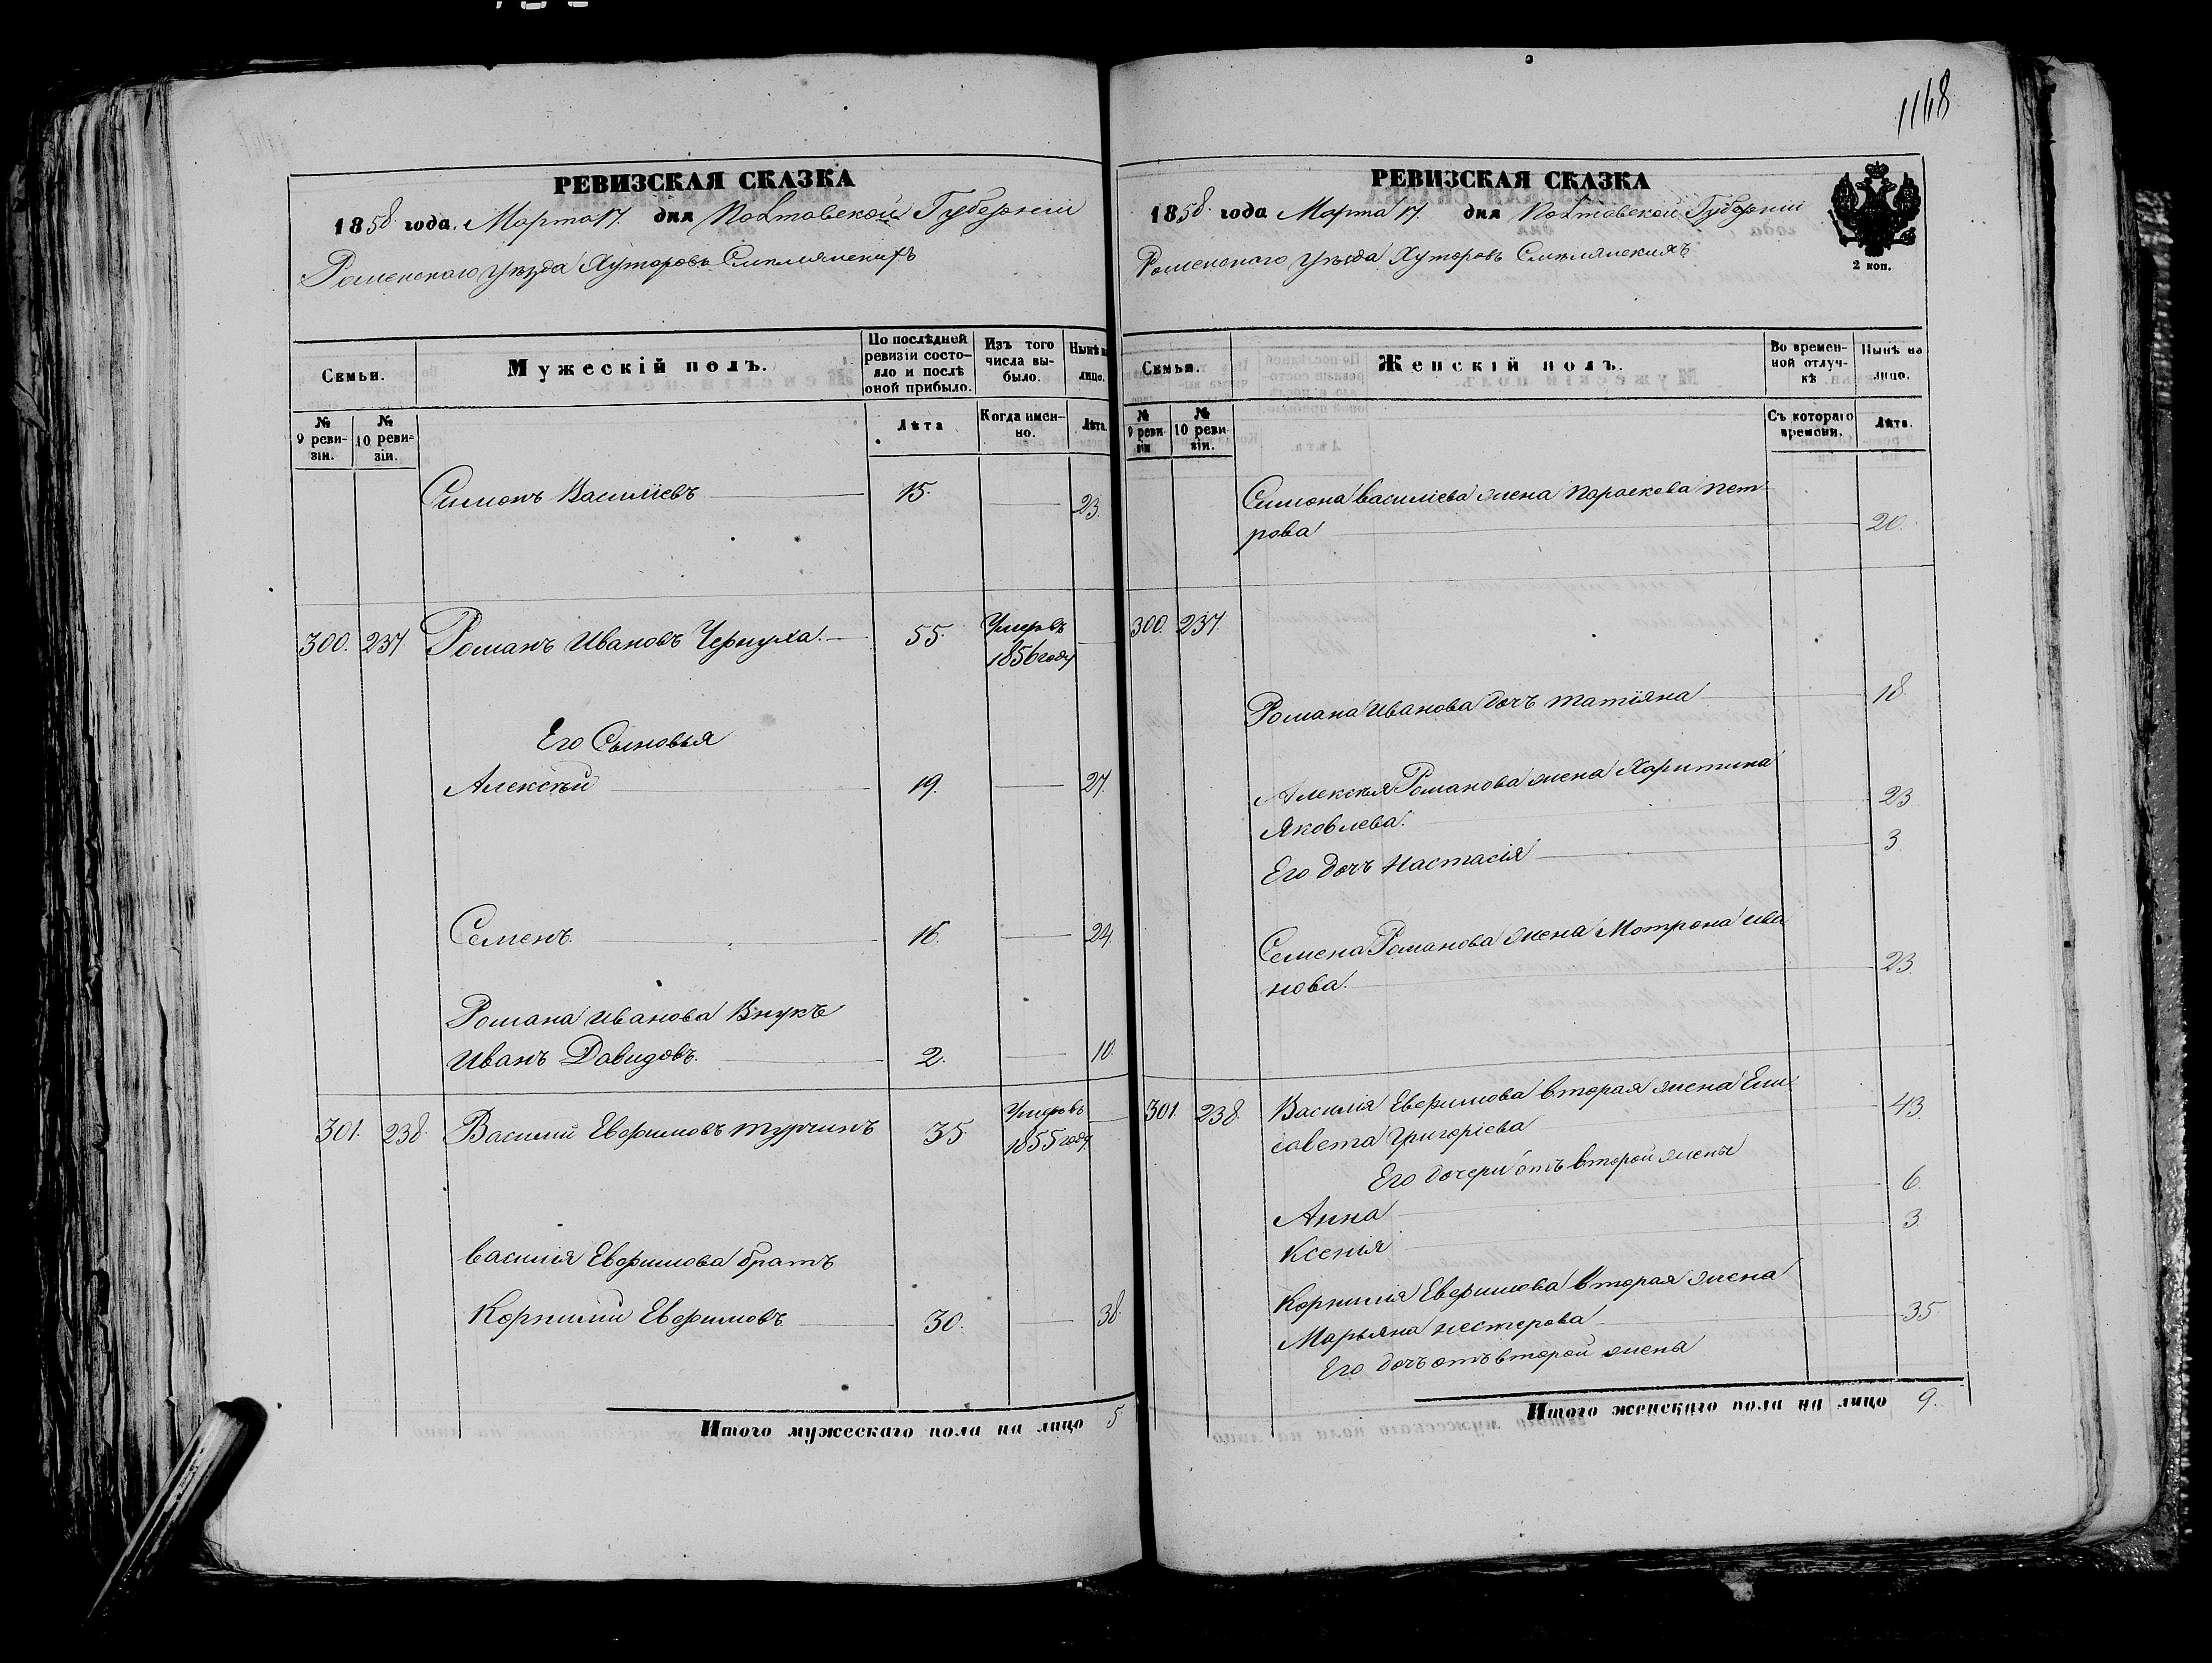 1168
РЕВИЗСКАЯ СКАЗКА
1858 года. Марта 17. дня Полтавской Губерніи
Роменского уѣзда Хуторовъ Смелянскихъ
Семьи.
Мужескій полъ.
По послѣдней ревизіи состояло и послѣ оной прибыло.
Изъ того числа выбыло.
Нынѣ на лицо.
№ 9 ревизіи.
№ 10 ревизіи.
Лѣта
Когда именно.
Лѣта.
Симонъ Василіевъ 15. 23.
300. 237. Романъ Ивановъ Чернуха. 55. Умеръ въ 1856 году
Его Сыновья
Алексѣй 19. 27.
Семенъ. 16. 24.
Романа Иванова Внукъ
Иванъ Давидовъ. 2. 10.
301. 238. Василий Евфимовъ Турчинъ 35. Умеръ въ 1855 году.
Василія Евфимова братъ
Корнилий Евфимовъ 30. 38.
Итого мужескаго пола на лицо 5
РЕВИЗСКАЯ СКАЗКА
1858 года Марта 17. дня Полтавской Губерніи
Роменского уѣзда Хуторовъ Смелянскихъ
2 коп.
Семьи.
Женскій полъ.
Во временной отлучкѣ
Нынѣ на лицо.
№ 9 ревизіи
№ 10 ревизіи.
Съ котораго времени.
Лѣта.
Симона Василіева жена Параскева Пет-
рова 20.
300. 237
Романа Иванова дочь Татіяна 18.
Алексѣя Романова жена Харитина
Яковлева. 23
Его дочь Настасія 3
Семена Романова жена Мотрона Ива
нова. 23.
301. 238. Василія Евфимова вторая жена Ели
савета Григоріева 43
Его дочери отъ второй жены
Анна 6.
Ксенія 3
Корнилія Евфимова вторая жена
Марьяна Нестерова 35.
Его дочь отъ второй жены
Итого женскаго пола на лицо 9.